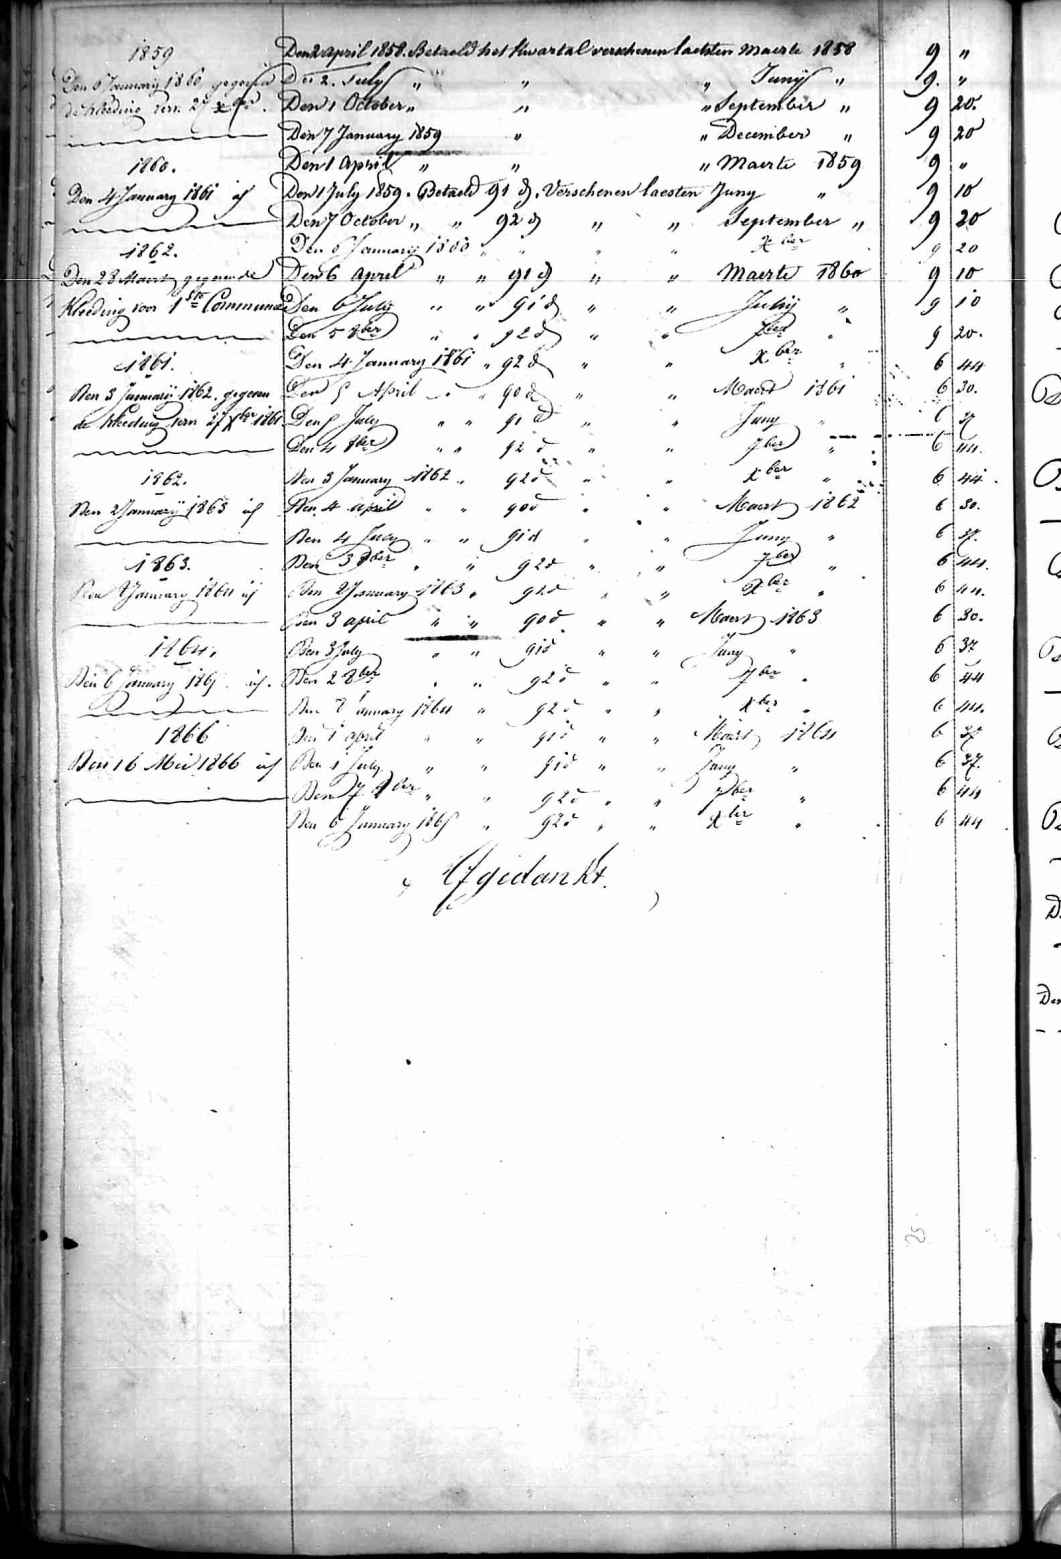 1859
Den 6 January 1860 gegeven
de kleeding
1860.
Den 4 January 1861 id
1862.
Den 28 Maert gegeven de
Kleeding voor 1ste Communie
1861.
Den 3 January 1862. gegeven
de kleeding tern 27 xber 1861
1862.
Den 2 January 1863 id
1863.
Den 2 January 1864 id
1864.
Den 6 January 1865 id.
1866
Den 16 Mei 1866 id
Den 2 April 1858. Betaeld het kwartal verschenen laetsten Maerte 1858 9 "
Den 2. July " " " Junij " 9. "
Den 1 October " " " September " 9 20.
Den 7 January 1859 " " December " 9 20
Den 1 April " " " Maerte 1859 9 "
Den 1 July 1859. Betaeld 91 d. Verschenen laesten Juny " 9 10
Den 7 October " " 92 d " " September " 9 20
Den 6 January 1860 " " " " xber 9 20
Den 6 April " " 91 d " " Maerte 1860 9 10
Den 6 July " " 91 d " " Junij " 9 10
Den 5 8ber " " 92 d " " 7ber " 9 20.
Den 4 January 1861 " 92 d " " xber " 6 44
Den 5 April " " 90 d " " Maert 1861 6 30.
Den 5 July " " 91 d " " Juny " 6 37
Den 4 8ber " " 92 d " " 7ber " 6 44.
Den 3 January 1862 " 92 d " " xber " 6 44.
Den 4 april " " 90 d " " Maert 1862 6 30.
Den 4 July " " 91 d " " Juny " 6 37.
Den 3 8ber " " 92 d " " 7ber " 6 44.
Den 2 January 1863 " 92 d " " xber " 6 44.
Den 3 april " " 90 d " " Maert 1863 6 30.
Den 3 July " " 91 d " " Juny " 6 37
Den 2 8ber " " 92 d " " 7ber " 6 44
Den 2 January 1864 " 92 d " " xber " 6 44.
Den 1 april " " 91 d " " Maert 1864 6 37
Den 1 July " " 91 d " " Juny " 6 37.
Den 7 8ber " " 92 d " " 7ber " 6 44
Den 6 January 1865 " 92 d " " xber " 6 44
Afgedankt.